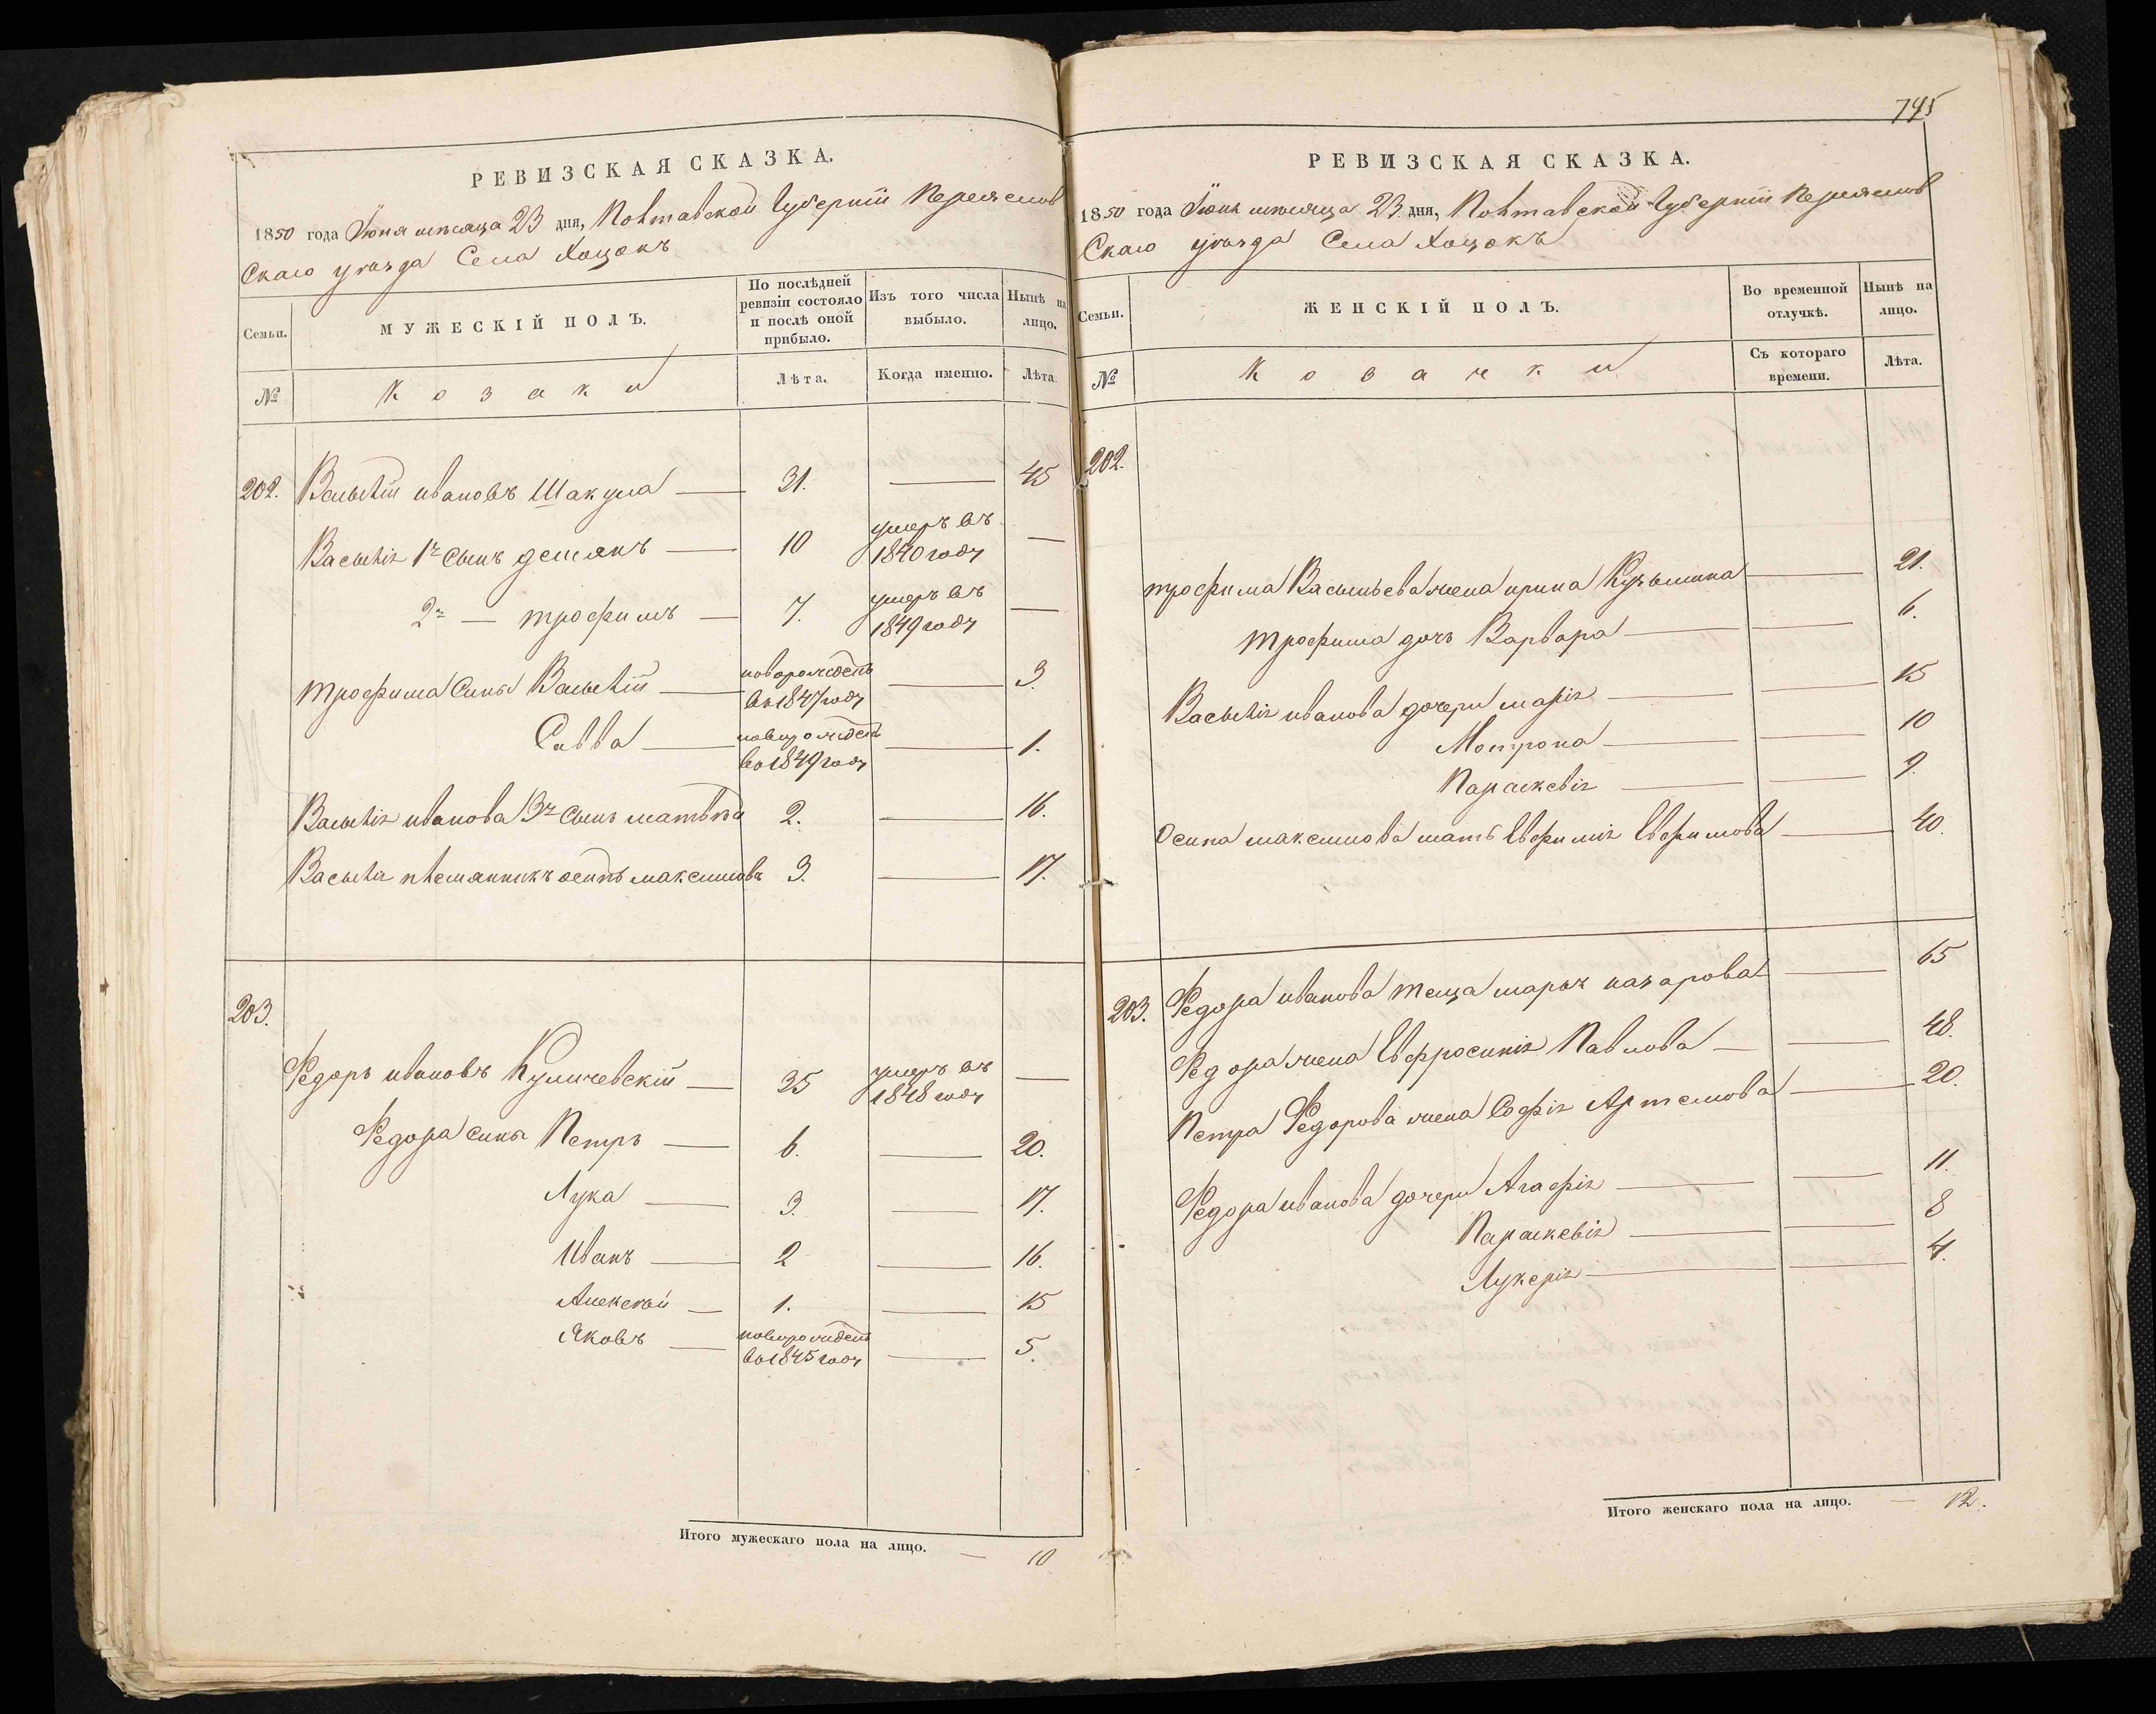 РЕВИЗСКАЯ СКАЗКА.
1850 года Июня месяца 23 дня, Полтавской Губерніи Переяслов
Скаго уѣзда Села Хоцокъ
Семьи.
МУЖЕСКІЙ ПОЛЪ.
По послѣдней ревизіи состояло и послѣ оной прибыло.
Изъ того числа выбыло.
Нынѣ на лицо.
№
Козаки
Лѣта.
Когда именно.
Лѣта.
202. Василій Ивановъ Шакула 31. 45
Василія 1й сынъ Демянъ 10 умеръ въ 1840 году
2й — Трофимъ 7. умеръ въ 1849 году
Трофима Сины Василій новорожденъ во 1847 году 3
Савва новорожденъ во 1849 году 1.
Василія Иванова 3й сынъ Матвѣй 2. 16.
Василія племянникъ Осипъ Максимовъ 3. 17.
203.
Федоръ Ивановъ Куличевскій 35 умеръ въ 1848 году
Федора сины Петръ 6. 20.
Лука 3. 17.
Иванъ 2 16.
Алексѣй 1. 15
Яковъ новорожденъ во 1845 году 5.
Итого мужескаго пола на лицо. — 10
745
РЕВИЗСКАЯ СКАЗКА.
1850 года Июня месяца 23 дня, Полтавской Губерніи Переяслов
Скаго уѣзда Села Хоцокъ
Семьи.
ЖЕНСКІЙ ПОЛЪ.
Во временной отлучкѣ.
Нынѣ на лицо.
№
Козачки
Съ котораго времени.
Лѣта.
202.
Трофима Васильева жена Ирина Кузьмина 21.
Трофима дочь Варвара 6.
Василія Иванова дочери Марія 15
Мотрона 10
Параскевія 9.
Осипа Максимова мать Евфимія Евфимова 40.
203. Федора Иванова теща Марья Назарова 65
Федора жена Евфросинія Павлова 48.
Петра Федорова жена Софія Артемова 20.
Федора Иванова дочери Агафія 11.
Параскевія 8
Лукерія 4.
Итого женскаго пола на лицо. — 12.